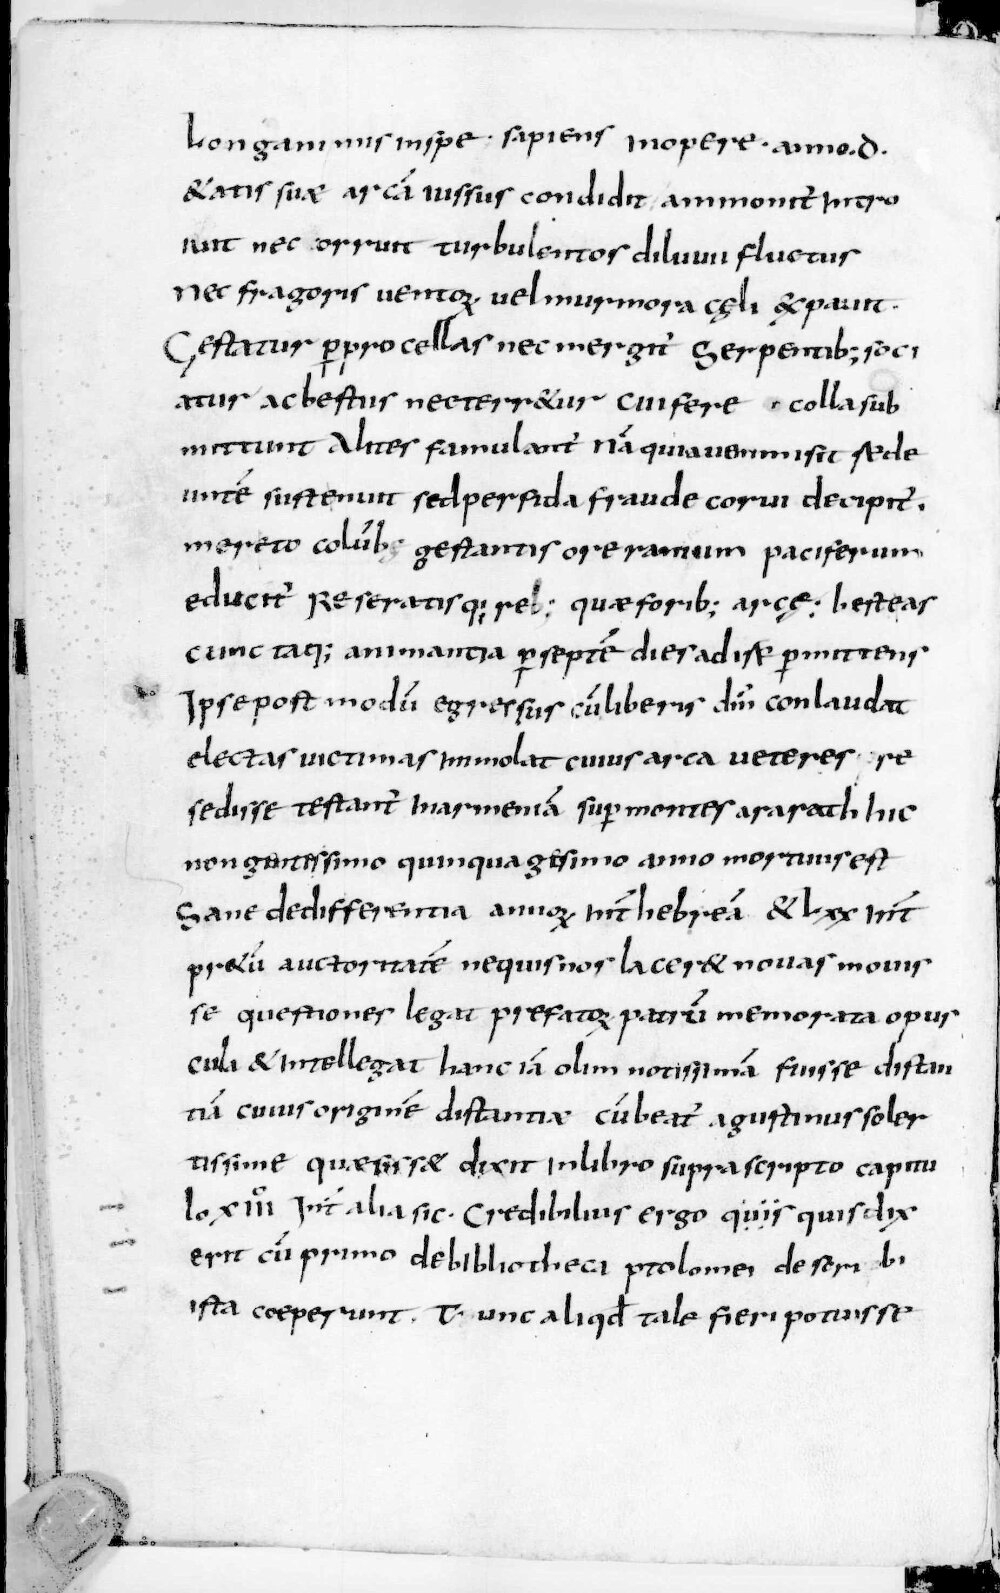 Longanimis inspe · sapiens inopere · anno · d ·
&atis suæ arcā iussus condidit ammonit̄ intro
iuit nec orruit turbulentos diluuii fluctus
Nec fragoris uentoꝝ uel murmora cęli expauit ·
Gestatur ꝑprocellas nec mergit̄ Serpentib; soci
atur ac bestiis necterr&ur Cui fere colla sub
mittunt Alites famulant̄ Nā quia uenmisit sede
untē sustenuit sed perfida fraude corui decipit̄ ·
mereto colūbę gestantis ore ramum paciferum
educit̄ Reseratisq; reb; quæ forib; arcę; besteas
cunctaq; animantia ꝑseptē dies adisæ ꝑmittens
Ipse post modū egressus cūliberis dn̄m conlaudat
electas uictimas inmolat cuius arca ueteres re
sedisse testant̄ inarmeniā suꝑ montes ararath hic
nongentessimo quinquagesimo anno mortuus est
Sane dedifferentia annoꝝ int̄ hebreā & Lxx int̄
pr&ū auctoritatē nequis nos lacer& nouas mouis
se questiones legat prefatoꝝ patrū memorata opus
culi & intellegat hanc iā olim notissimā fuisse distan
tiā cuius originē distantiæ cū beat̄ agustinus soler
tissime quæsissæ dixit inlibro suprascripto capitu
lo xiiiº Int̄ alia sic · Credibilius ergo quiis quis dix
erit cū primo debibliotheca ptolomei describi
ista coeperunt · Tunc aliqd̄ tale fieri potuisse